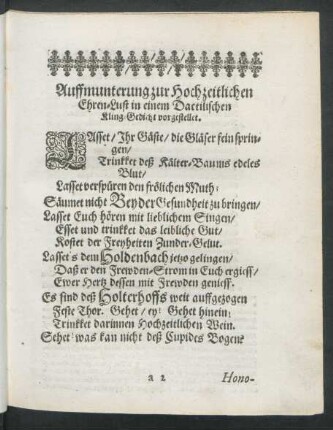 Auffmunterung zur Hochzeitlichen
Ehren-Lust in einem Dactilischen
Kling-Gedicht vorgestellet.
LAsset / Ihr Gäste / die Gläser fein sprin-
gen /
Trinkket deß Kälter-Baums edeles
Blut /
Lasset verspüren den frölichen Muth:
Säumet nicht Beyder Gesundheit zu bringen /
Lasset Euch hören mit lieblichem Singen /
Esset und trinkket das leibliche Gut /
Kostet der Freyheiten Zunder-Gelut.
Lasset's dem Holdenbach jetzo gelingen /
Daß er den Frewden-Strom in Euch ergiess /
Ewer Hertz dessen mit Frewden geniess.
Es sind deß Holterhoffs weit auffgezogen
Feste Thor. Gehet / ey! Gehet hinein:
Trinkket darinnen Hochzeitlichen Wein.
Sehet! was kan nicht deß Cupides Bogen?
a 2 Hono-